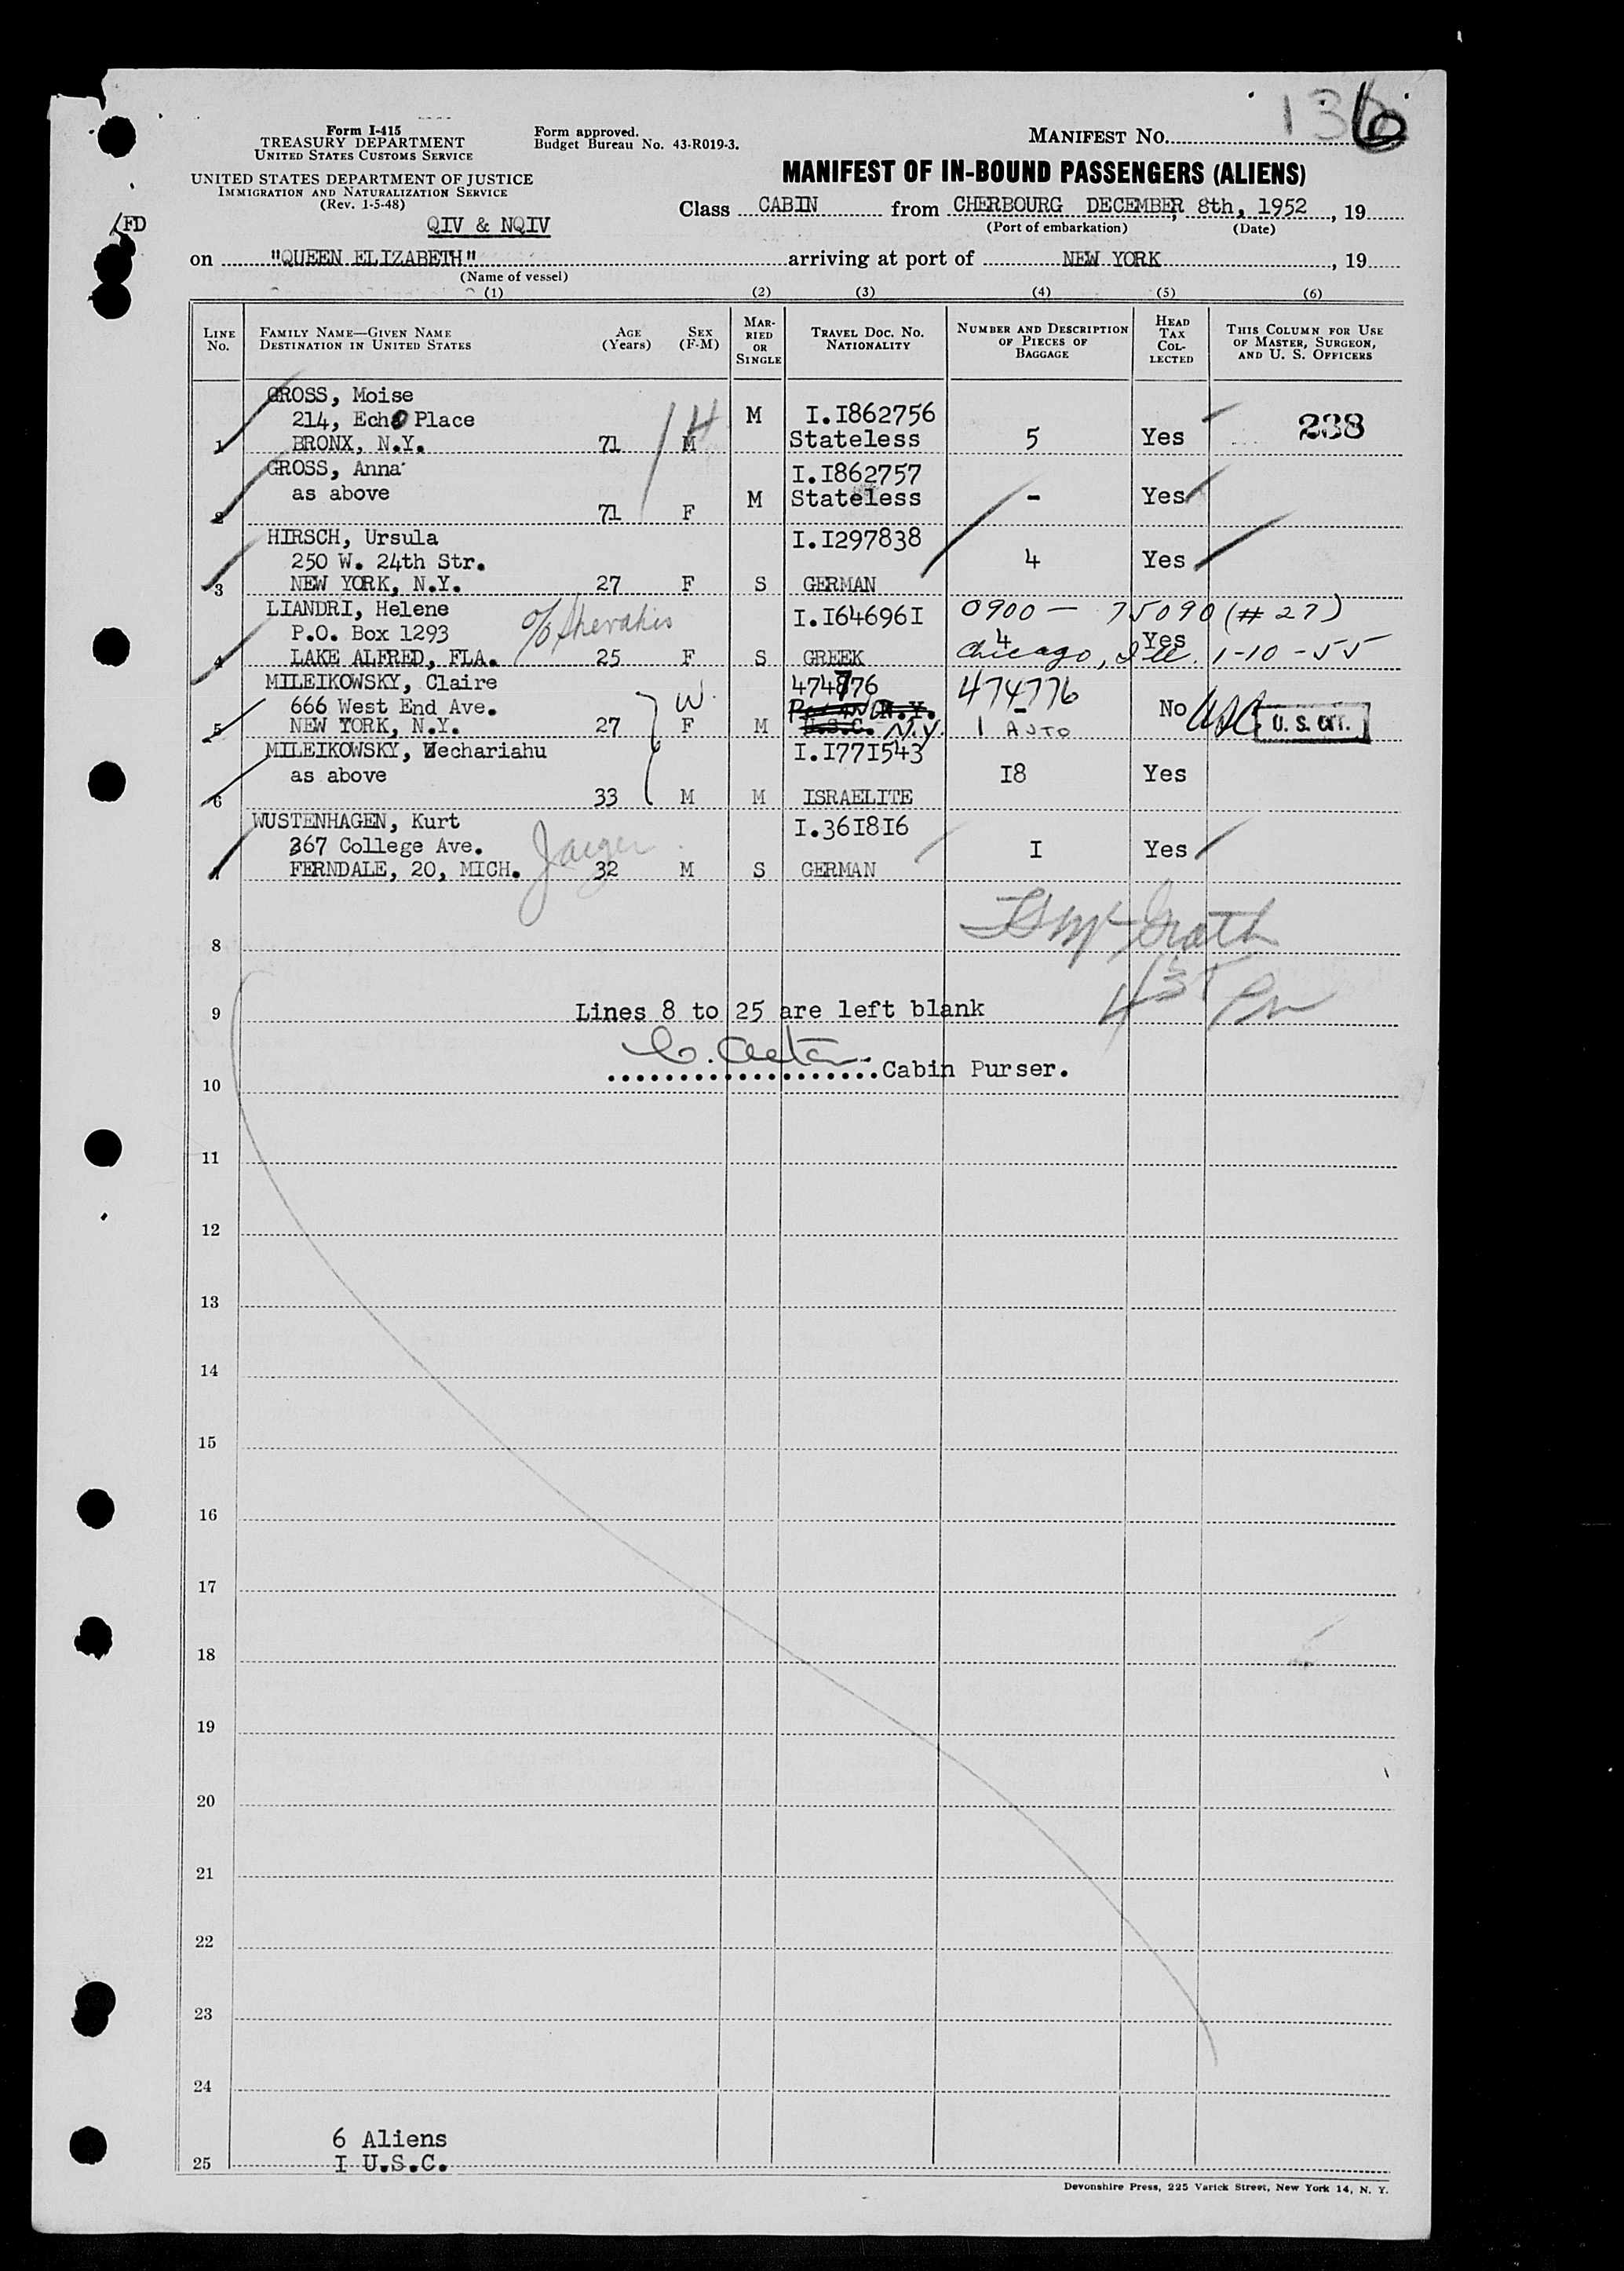 136
Form I-415
TREASURY DEPARTMENT
UNITED STATES CUSTOMS SERVICE
UNITED STATES DEPARTMENT OF JUSTICE
IMMIGRATION AND NATURALIZATION SERVICE
(Rev. 1-5-48)
Form approved.
Budget Bureau No. 43-R019-3.
MANIFEST NO.
MANIFEST OF IN-BOUND PASSENGERS (ALIENS)
/FD
QIV & NQIV
Class CABIN from CHERBOURG DECEMBER 8th, 1952, 19
(Port of embarkation) (Date)
on "QUEEN ELIZABETH" arriving at port of NEW YORK, 19
(Name of vessel)
(1) (2) (3) (4) (5) (6)
LINE NO.
FAMILY NAME—GIVEN NAME
DESTINATION IN UNITED STATES
AGE (Years)
SEX (F-M)
MARRIED OR SINGLE
TRAVEL DOC. NO.
NATIONALITY
NUMBER AND DESCRIPTION OF PIECES OF BAGGAGE
HEAD TAX COLLECTED
THIS COLUMN FOR USE OF MASTER, SURGEON, AND U. S. OFFICERS
GROSS, Moise
214, Echo Place M I.I862756 238
1 BRONX, N.Y. 71 M Stateless 5 Yes
GROSS, Anna I.I862757
as above M Stateless - Yes
2 71 F
HIRSCH, Ursula I.I297838
250 W. 24th Str. 4 Yes
3 NEW YORK, N.Y. 27 F S GERMAN
LIANDRI, Helene I.I64696I 0900 — 75090 (#27)
P.O. Box 1293 4 Yes
4 LAKE ALFRED, FLA. 25 F S GREEK Chicago, Ill. 1-10-55
MILEIKOWSKY, Claire 474776 474776
666 West End Ave. W. - No USC U. S. CIT.
5 NEW YORK, N.Y. 27 F M U.S.C. N.Y. 1 AUTO
MILEIKOWSKY, Zechariahu I.I77I543
as above I8 Yes
6 33 M M ISRAELITE
WUSTENHAGEN, Kurt I.36I8I6
367 College Ave. Jaeger I Yes
7 FERNDALE, 20, MICH. 32 M S GERMAN
8
9 Lines 8 to 25 are left blank
Cabin Purser.
10
11
12
13
14
15
16
17
18
19
20
21
22
23
24
6 Aliens
25 I U.S.C.
Devonshire Press, 225 Varick Street, New York 14, N. Y.